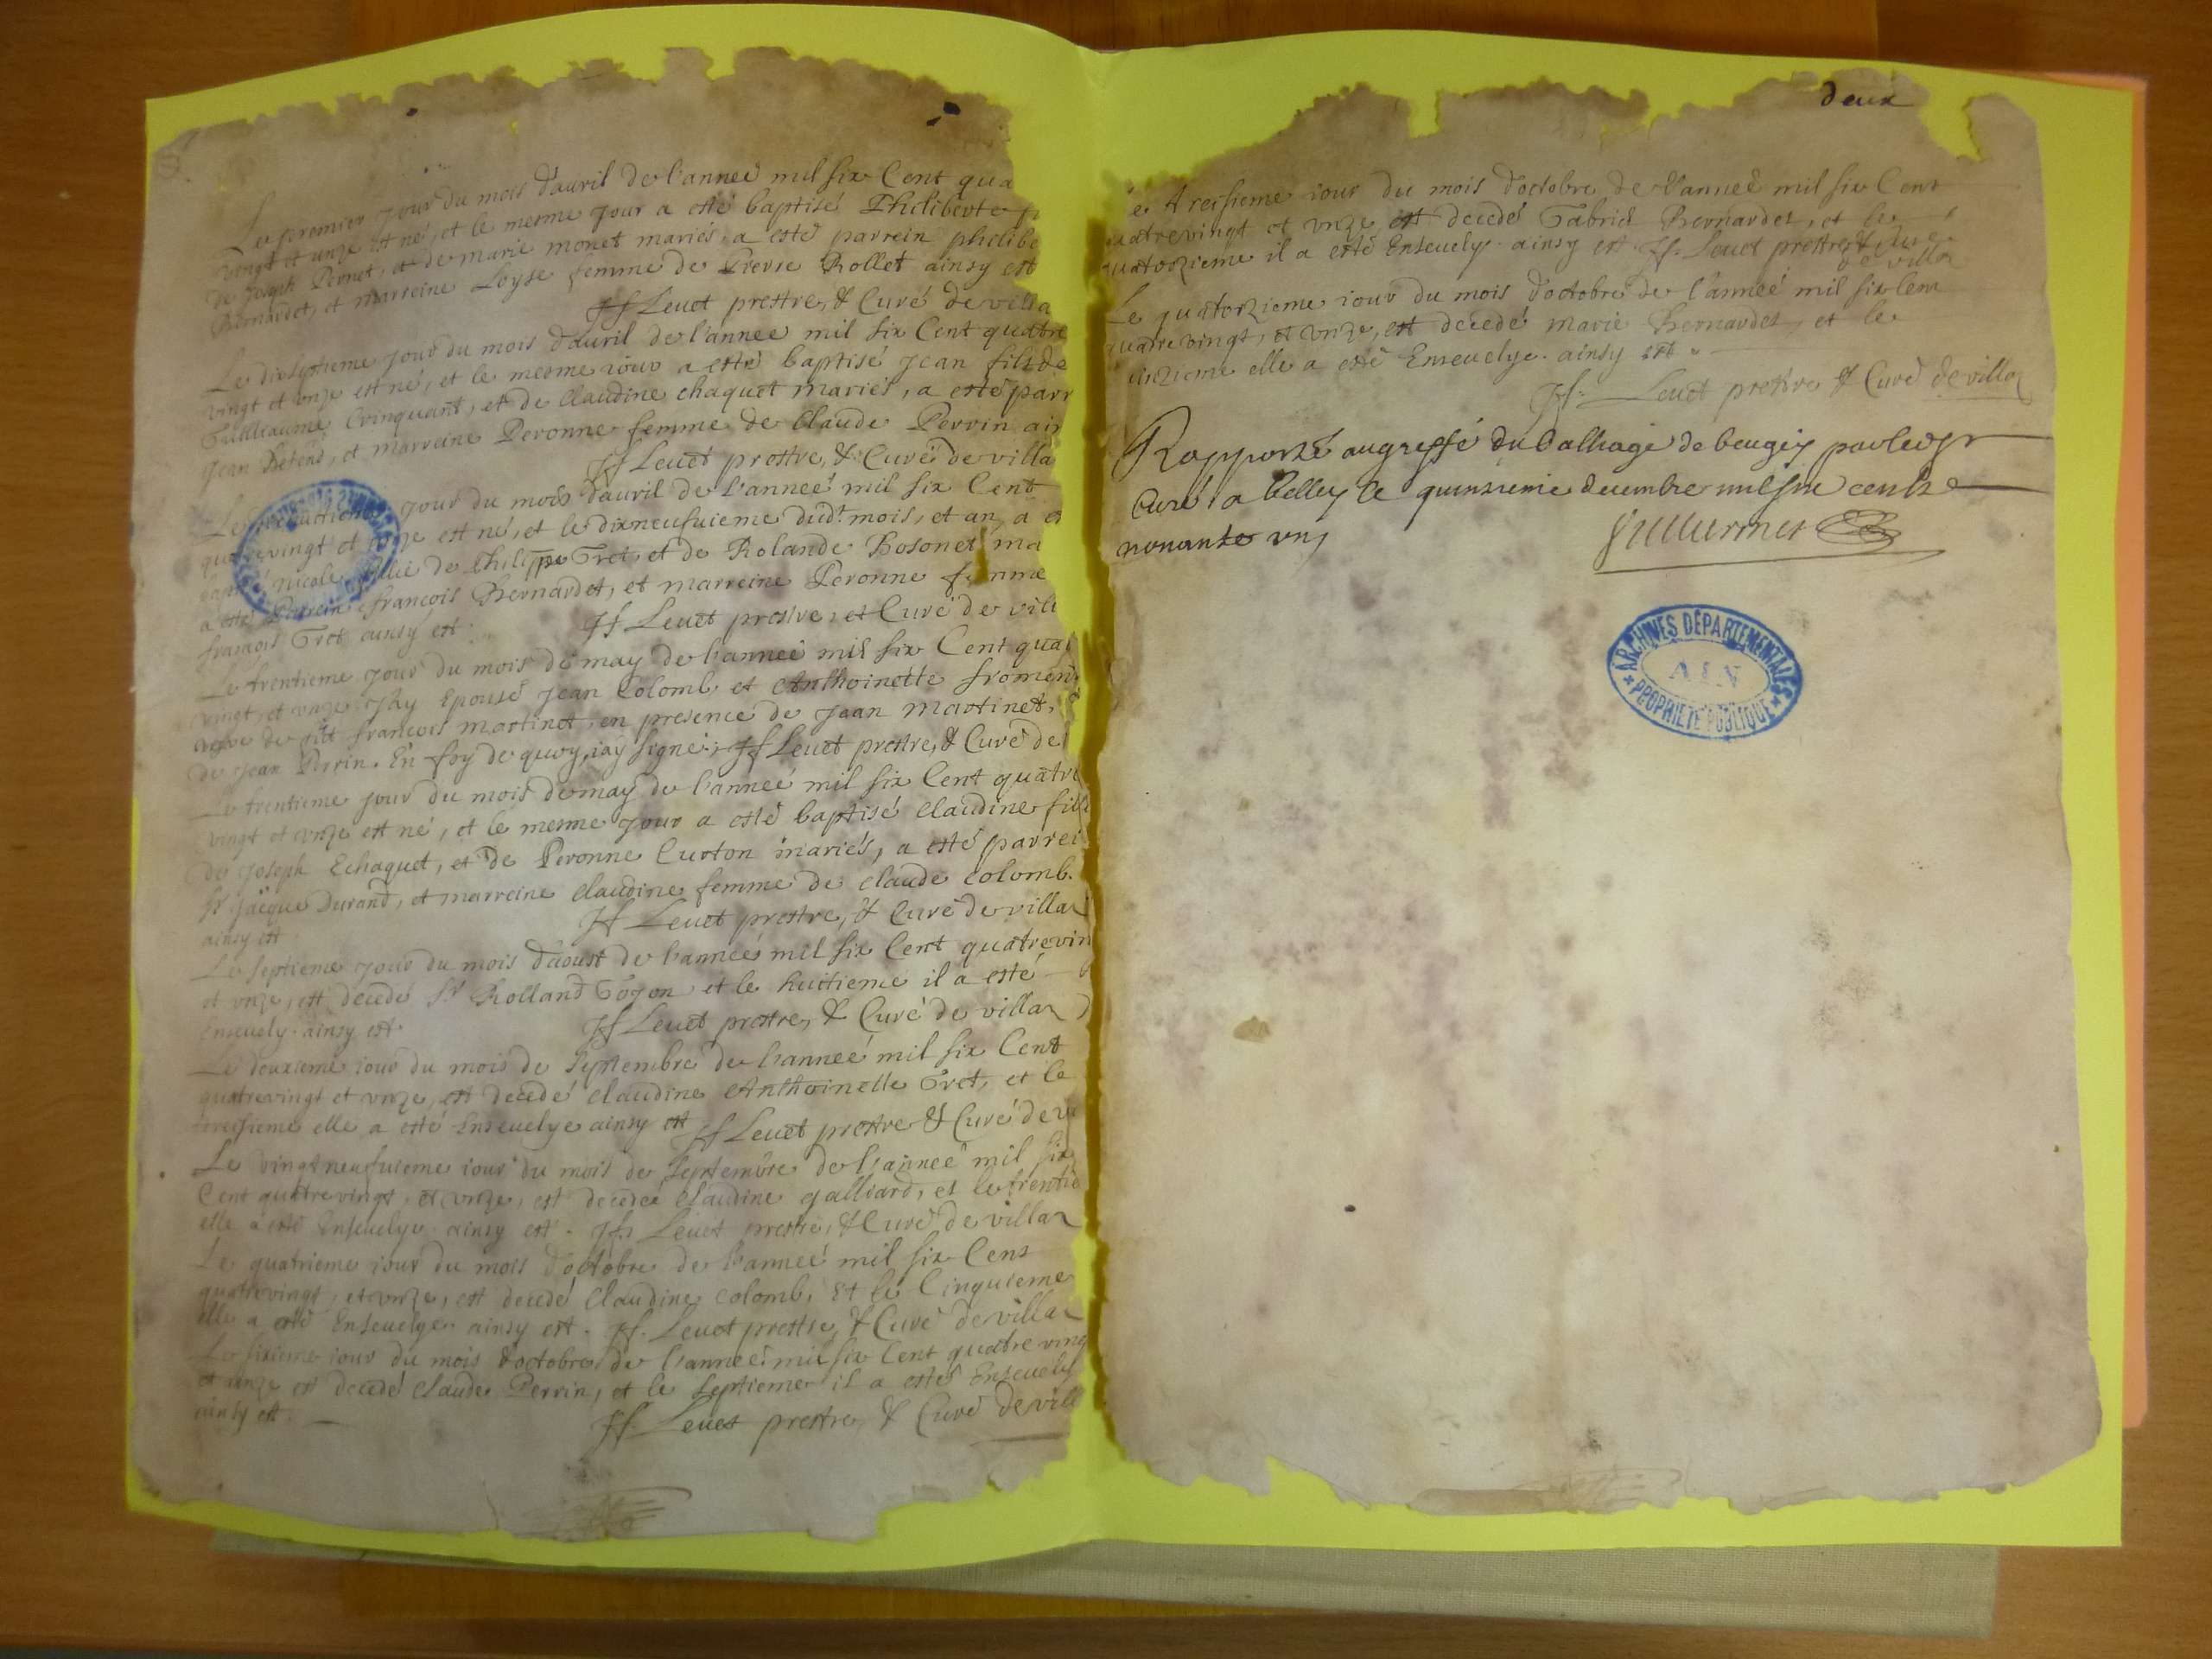 Le premier jour du mois d'auril de l'anneé mil six Cent qua
vingt et unze est né, et le mesme jour a esté baptisé Philiberte
de Joseph Pernet, et de marie monet mariés, a esté parrein philibe
Bernardet, et marreine Loyse femme de Pierre Rollet ainsy est
Jf Leuet prestre, & Curé de villa
Le dixseptieme jour du mois d'auril de l'anneé mil six Cent quatre
vingt et vnze est né, et le mesme iour a esté baptisé Jean fils de
Guilleaume Crinquant, et de Claudine chaquet mariés, a esté parr
Jean Retend, et marreine Peronne femme de Claude Perrin ai
Jf Leuet prestre, & Curé de villa
Le jour du mois d'auril de l'anneé mil six Cent
quatrevingt et vnze est né, et le dixneufuieme dud.t mois, et an, a e
nicole fillie de Philippe Gret, et de Rolande Bosonet ma
a esté parrein françois Bernardet, et marreine Peronne femme
françois Gret ainsy est
Jf Leuet prestre, et Curé de vill
Le trentieme jour du mois de may de l'anneé mil six Cent qua
vingt, et vnze J'ay Epousé Jean Colomb et Anthoinette fromen
vefve de fût françois martinet, en presence de Jean martinet,
de Jean Perrin. En foy de quoy, iay signé; Jf Leuet prestre, & Curé de
Le trentieme jour du mois de may de l'anneé mil six Cent quatre
vingt et vnze est né, et le mesme jour a esté baptisé Claudine fill
de Joseph Echaquet, et de Peronne Curton mariés, a esté parrei
Sr Jacque Durand, et marreine Claudine femme de Claude Colomb.
ainsy est
Jf Leuet prestre, & Curé de villar
Le septieme jour du mois d'aoust de l'anneé mil six Cent quatrevin
et vnze, est decedé Sr Rolland Gojon et le huitieme il a esté
Enseuely. ainsy est.
Jf Leuet prestre, & Curé de villar
Le deuxieme iour du mois de Septembre de l'anneé mil six Cent
quatrevingt et vnze, est decedé Claudine Anthoinette Gret, et le
treisieme elle a esté Enseuelye ainsy est Jf Leuet prestre & Curé de v
Le vingtneufuieme iour du mois de septembre de l'anneé mil six
Cent quatrevingt, et vnze, est decedeé Claudine galliard, et le trentie
elle a esté Enseuelye ainsy est. Jf. Leuet prestre, & Curé de villar
Le quatrieme iour du mois d'octobre de l'anneé mil six Cent
quatrevingt, et vnze, est decedé Claudine Colomb, Et le Cinquieme
elle a esté Enseuelye ainsy est. Jf. Leuet prestre, & Curé de villar
Le sixieme iour du mois d'octobre de l'anneé mil six Cent quatre ving
et vnze est decedé Claude Perrin, et le septieme il a esté Enseuely
ainsy est.
Jf. Leuet prestre, & Curé de vill
deux
e treisieme iour du mois d'octobre de l'anneé mil six Cent
uatrevingt et vnze est decedé Gabriel Bernardet, et le
quatorzieme il a esté Enseuely. ainsy est Jf. Leuet prestre & Cure
de villar
Le quatorzieme iour du mois d'octobre de l'anneé mil six Cent
quatrevingt, et vnze, est decedé marie Bernardet, et le
uinzieme elle a esté Enseuelye. ainsy est
Jf. Leuet prestre & Curé de villar
Rapporté au greffe du Balliage de beugey par ledt sr
Curé a Belley le quinzieme decembre mil six cents
nonante vn
Guillermet
ARCHIVES DÉPARTEMENTALES
AIN
PROPRIÉTÉ PUBLIQUE